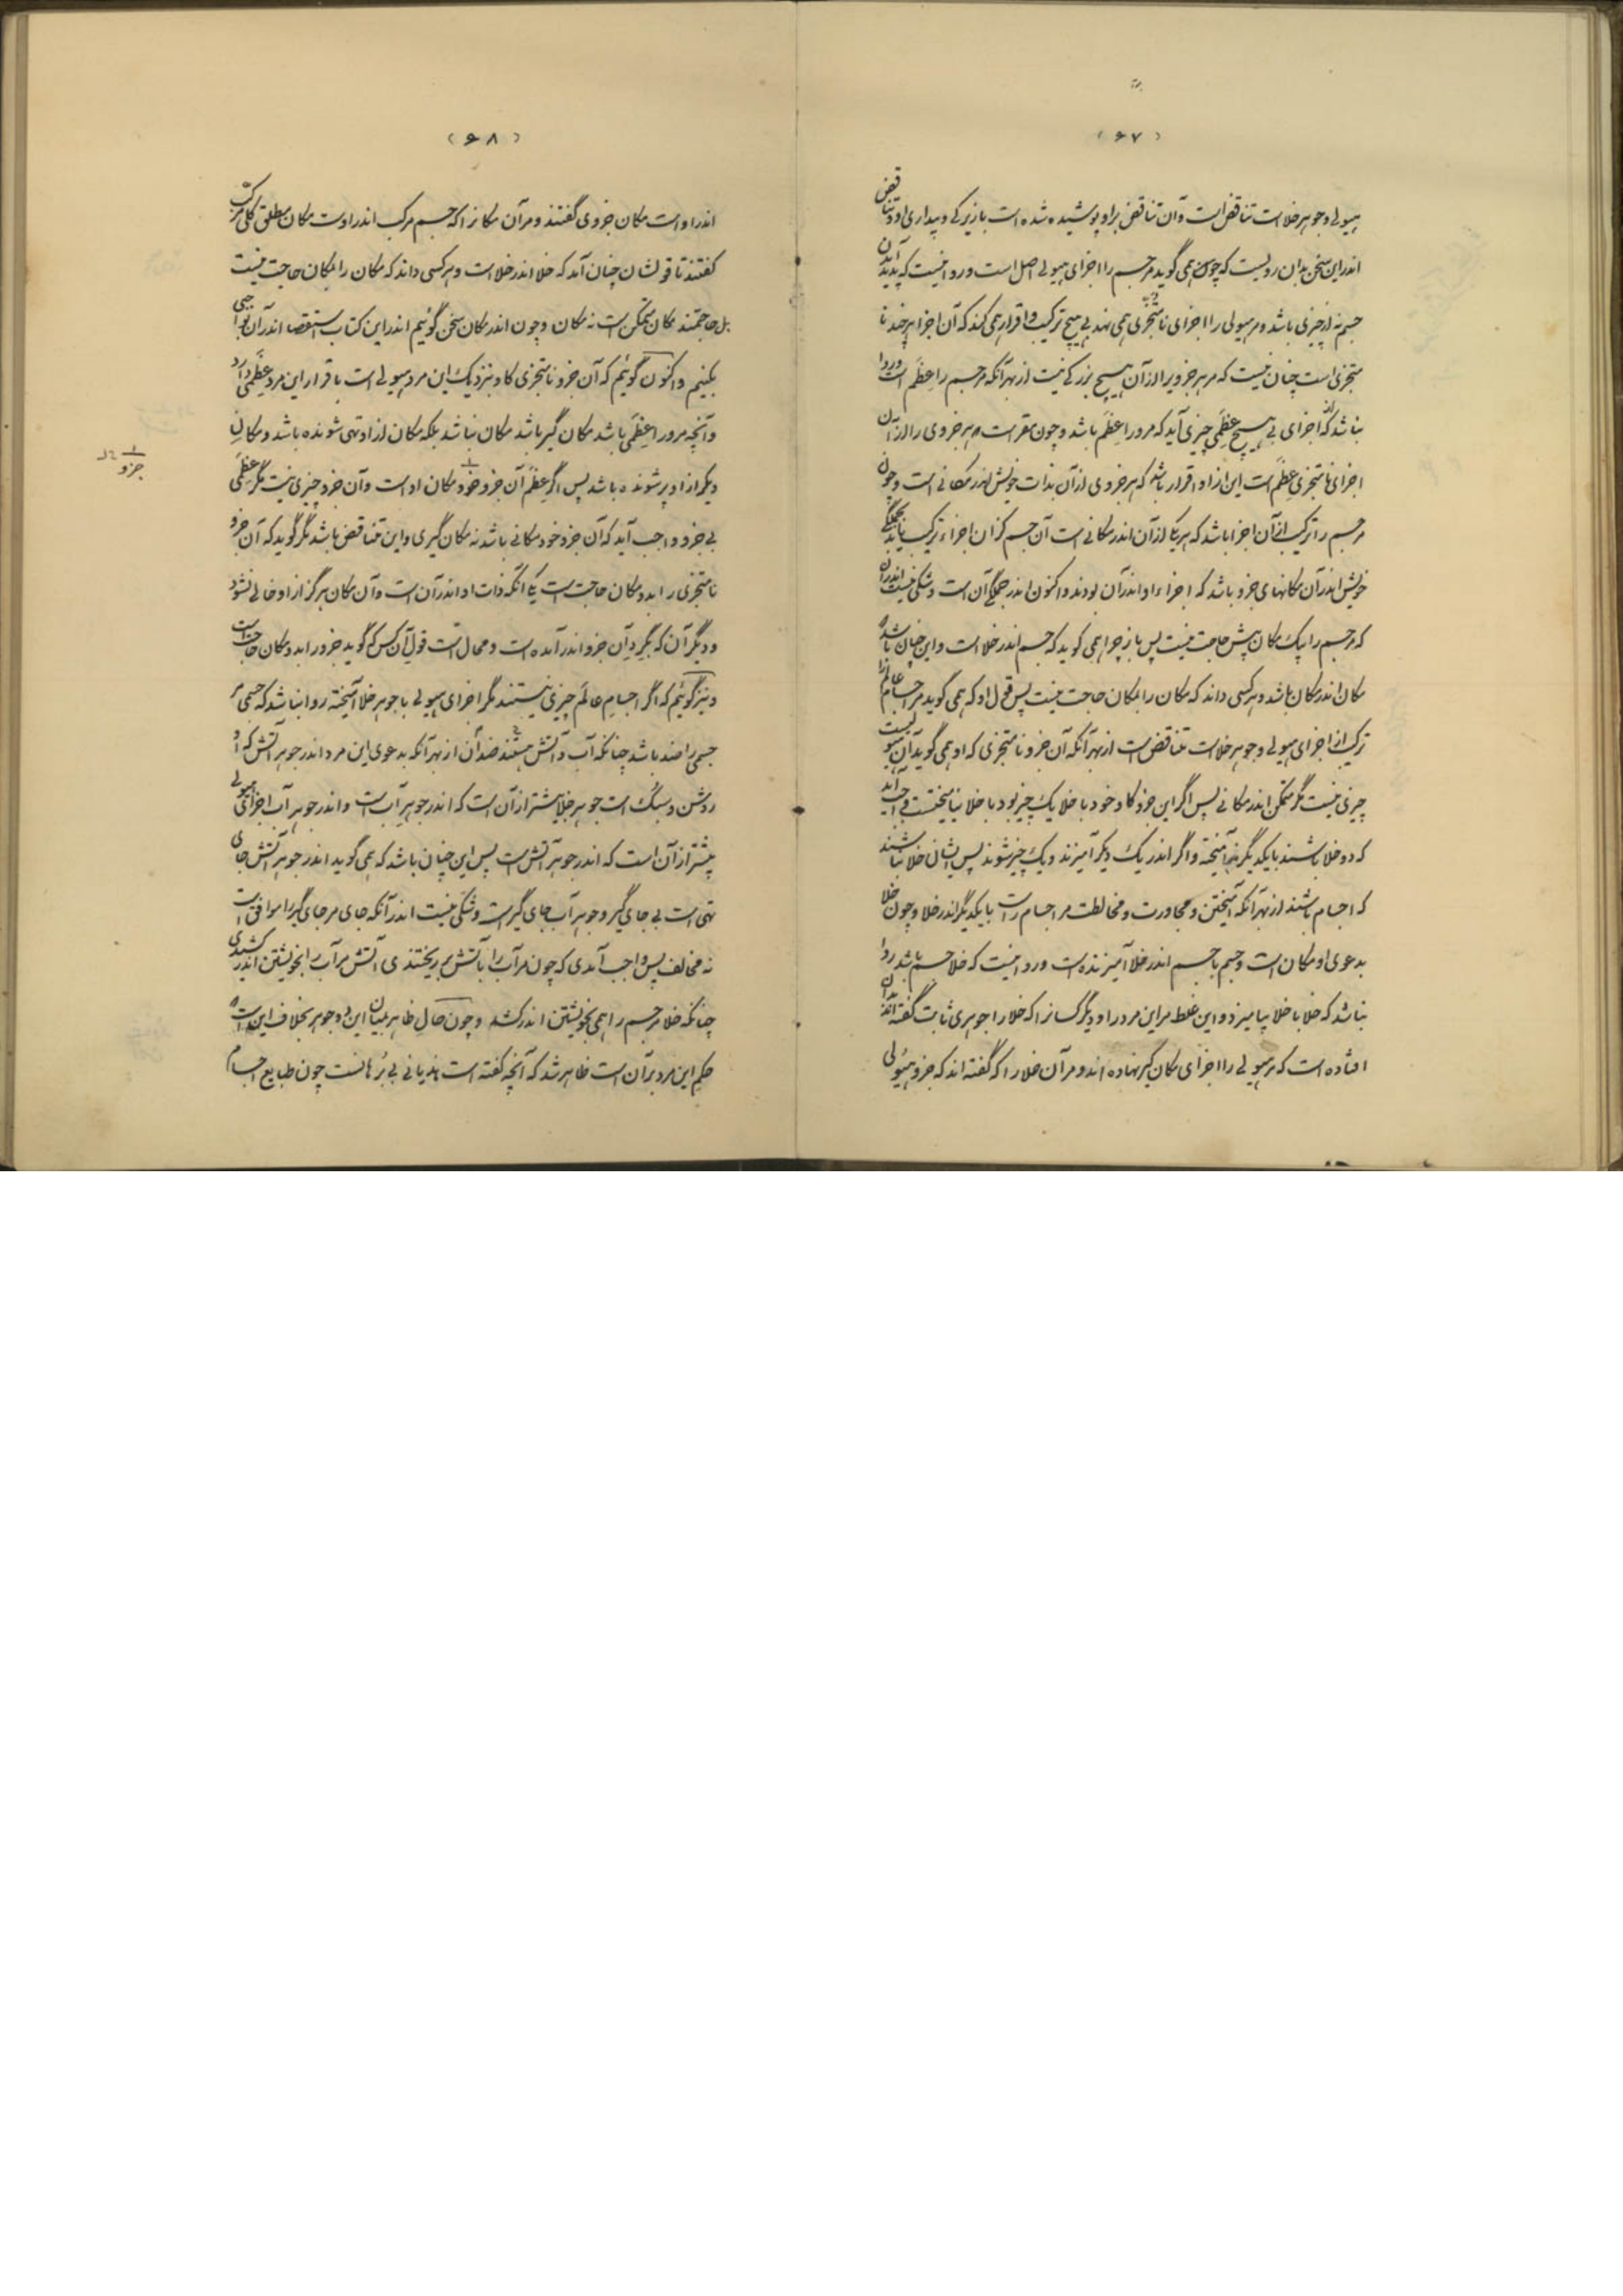 (۶۷)
هیولی و جوهر خلاست تناقض است و آن تناقض بر او پوشیده شده است بازیرکی و بیداری او و تناقض
اندر این سخن بدان رویست که چون همی گوید مر جسم را اجزای هیولی اصل است و روا نیست که پدید آمدن
جسم نه از چیزی باشد و مر هیولی را اجزای نامتجزی همی نهد بی هیچ ترکیب و اقرار همی کند که آن اجزا هر چند نا
متجزی است چنان نیست که مر هر جزوی را از آن هیچ بزرگی نیست از بهر آنکه مر جسم را عظم است و روا
نباشد که از اجزای بی هیچ عظمی چیزی آید که مرور را عظم باشد و چون مقر است هر جزوی را از آن
اجزای نامتجزی عظم است این از او اقرار باشد که هر جزوی از آن بذات خویش اندر مکانی است و چون
مر جسم را ترکیب از آن اجزا باشد که هر یکی از آن اندر مکانی است آن جسم کز آن اجزاء ترکیب یابد بجملگی
خویش اندر آن مکانهای جزو باشد که اجزاء او اندر آن بودند و اکنون اندر جملگی آن است و شکی نیست اندر آن
که مر جسم را بیک مکان بیش حاجت نیست پس باز چرا همی گوید که جسم اندر خلا است و این چنان باشد که
مکان اندر مکان باشد و هر کسی داند که مکان را بمکان حاجت نیست پس قول او که همی گوید مر اجسام عالم را
ترکیب از اجزای هیولی و جوهر خلاست تناقض است از بهر آنکه آن جزو نامتجزی که او همی گوید آن هیولیست
چیزی نیست مگر متمکن اندر مکانی پس اگر این جزو کاو خود با خلا یک چیز بود با خلا بیامیختست واجب آید
که دو خلا باشند بایکدیگر آمیخته و اگر اندر یک دیگر آمیزند و یک چیز شوند پس ایشان خلا نباشند
که اجسام باشند از بهر آنکه آمیختن و مجاورت و مخالطت مر اجسام راست بایکدیگر اندر خلا و چون خلا
بدعوی او مکان است و جسم با جسم اندر خلا آمیزنده است و روا نیست که خلا جسم باشد روا
نباشد که خلا با خلا بیامیزد و این غلط مر این مرد را و دیگر کسانرا که خلا را جوهری ثابت گفته اند بدان
افتاده است که مر هیولی را اجزای مکان گیر نهاده اند و مر آن خلا را که گفته اند که جزو هیولی
(۶۸)
اندر اوست مکان جزوی گفتند و مر آن مکانرا که جسم مرکب اندر اوست مکان مطلق کلی مرکب
گفتند تا قولشان چنان آمد که خلا اندر خلاست و هر کسی داند که مکان را بمکان حاجت نیست
بل حاجتمند مکان متمکن است نه مکان و چون اندر مکان سخن گوئیم اندر این کتاب استقصا اندر آن بواجبی
بکنیم و اکنون گوئیم که آن جزو نامتجزی کاو بنزدیک این مرد هیولی است باقرار این مرد عظمی دارد
و آنچه مرو را عظمی باشد مکان گیر باشد مکان نباشد بلکه مکان از او تهی شونده باشد و مکان
دیگر از او پر شونده باشد پس اگر عظم آن جزو خود مکان اوست و آن جزو چیزی نیست مگر عظمی
بی جزو واجب آید که آن جزو خود مکانی باشد نه مکان گیری و این تناقض باشد مگر گوید که آن جزو
نامتجزی را بدو مکان حاجت است یکی آنکه ذات او اندر آن است و آن مکان هرگز از او خالی نشود
و دیگر آن که بگرد آن جزو اندر آمده است و محال است قول آن کس که گوید جزو را بدو مکان حاجت است
و نیز گوئیم که اگر اجسام عالم چیزی نیستند مگر اجزای هیولی با جوهر خلا آمیخته روا نباشد که جسمی مر
جسمی را ضد باشد چنانکه آب و آتش هستند ضدان از بهر آنکه بدعوی این مرد اندر جوهر آتش که او
روشن و سبک است جوهر خلا بیشتر از آن است که اندر جوهر آب است و اندر جوهر آب اجزای هیولی
بیشتر از آن است که اندر جوهر آتش است پس این چنان باشد که همی گوید اندر جوهر آتش جای
تهی است بی جای گیر و جوهر آب جای گیر است و شکی نیست اندر آنکه جای مر جای گیر را موافق است
نه مخالف پس واجب آمدی که چون مر آب را با آتش بر ریختندی آتش مر آب را بخویشتن اندر کشیدی
چنانکه خلا مر جسم را همی بخویشتن اندر کشد و چون حال ظاهر بمیان این دو جوهر بخلاف این است که
حکم این مرد بر آن است ظاهر شد که آنچه گفته است هذیانی بی برهانست چون طبایع اجسام
جزو